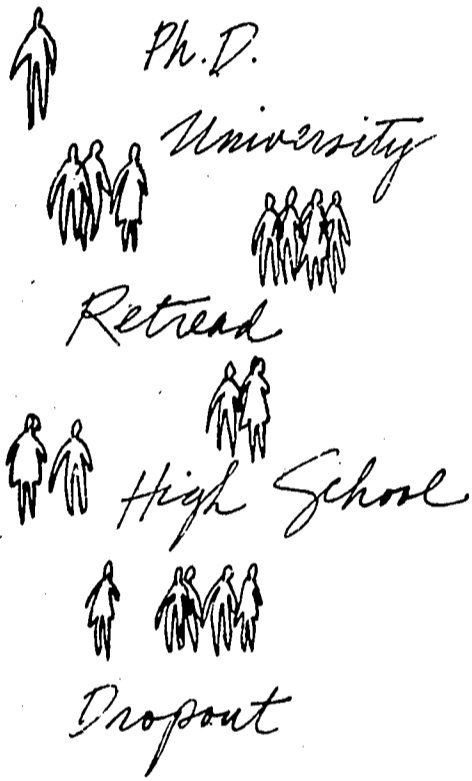 Ph.D.
University
Retread
High School
Dropout